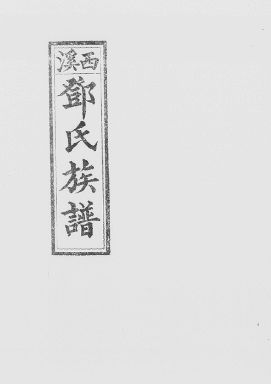 西溪
鄧氏族譜